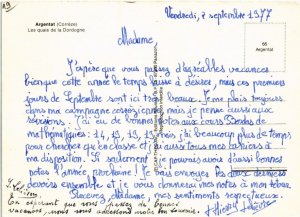 Argentat (Corrèze)
Les quais de la Dordogne
Vendredi, 2 septembre 1977
66
Argentat
Madame
J'espère que vous passez d'agréables vacances
bien que cette année le temps laisse à désirer, mais ces premiers
jours de Septembre sont ici très beaux. Je me plais toujours
dans ma campagne corrézienne mais je pense aussi aux
révisions. J'ai eu de bonnes notes aux cours Bordas de
mathématiques: 14, 13, 13, 13 mais j'ai beaucoup plus de temps
pour chercher qu'en classe et j'ai aussi tous mes cahiers à
ma disposition. Si seulement je pouvais avoir d'aussi bonnes
notes l'année prochaine! Je vous envoyer les deux derniers
devoirs ensemble et je vous donnerai mes notes à mon retour.
Recevez, Madame, mes sentiments respectueux.
En espérant que
vacances nous vous adressons notre bon souvenir.